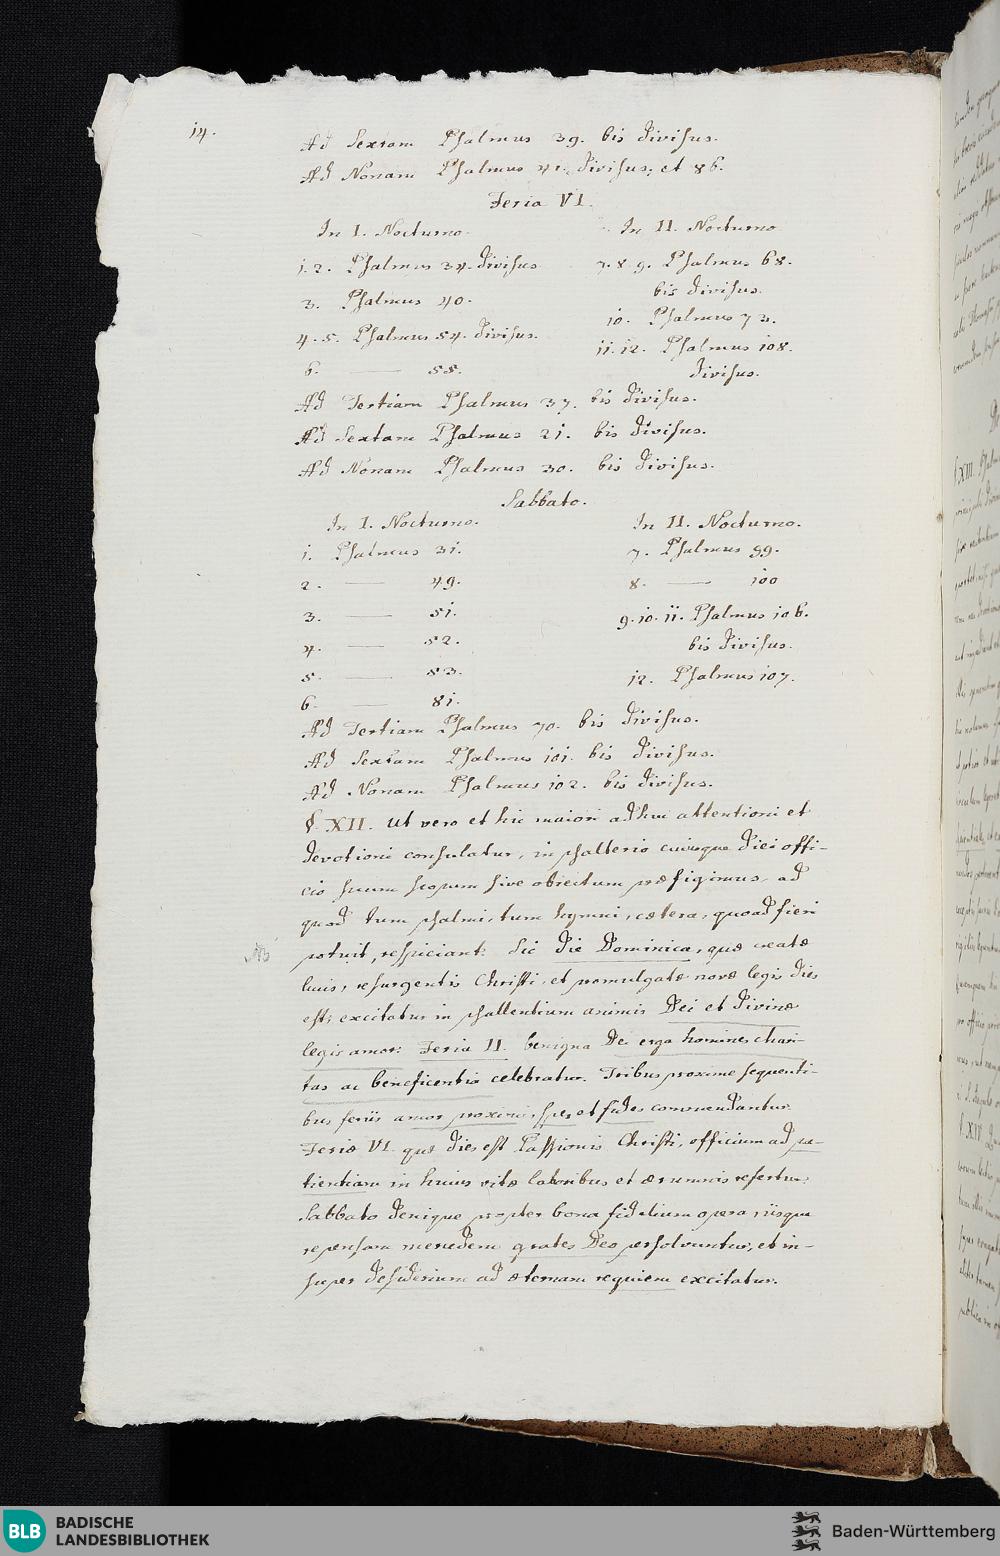 14.
Ad Sextam Psalmus 39. bis divisus.
Ad Nonam Psalmus 41. divisus; et 86.
Feria VI.
In I. Nocturno.
1. 2. Psalmus 34. divisus
3. Psalmus 40.
4. 5. Psalmus 54. divisus.
6. — 55.
In II. Nocturno
7. 8. 9. Psalmus 68.
bis divisus.
10. Psalmus 73.
11. 12. Psalmus 108.
divisus.
Ad Tertiam Psalmus 37. bis divisus.
Ad Sextam Psalmus 21. bis divisus.
Ad Nonam Psalmus 30. bis divisus.
Sabbato.
In I. Nocturno.
1. Psalmus 31.
2. — 49.
3. — 51.
4. — 52.
5. — 53.
6. — 81.
In II. Nocturno.
7. Psalmus 99.
8. — 100
9. 10. 11. Psalmus 106.
bis divisus.
12. Psalmus 107.
Ad Tertiam Psalmus 70. bis divisus.
Ad Sextam Psalmus 101. bis divisus.
Ad Nonam Psalmus 102. bis divisus.
§. XII. Ut vero et hic maiori adhuc attentioni et
devotioni consulatur, in psalterio cuiusque diei offi-
cio suum scopum sive obiectum præfigimus, ad
quod tum psalmi, tum hymni, cætera, quoad fieri
potuit, respiciant. Sic die Dominica, quæ creatæ
NB
lucis, resurgentis Christi, et promulgatæ novæ legis dies
est, excitatur in psallentium animis Dei et divinæ
legis amor: Feria II. benigna Dei erga homines chari-
tas ac beneficentia celebratur. Tribus proxime sequenti-
bus feriis amor proximi, spes et fides commendantur.
Feria VI. quæ dies est Passionis Christi, officium ad pa-
tientiam in huius vitæ laboribus et ærumnis refertur.
Sabbato denique propter bona fidelium opera, iisque
repensam mercedem grates Deo persolvuntur, et in-
super desiderium ad æternam requiem excitatur.
BLB
BADISCHE
LANDESBIBLIOTHEK
Baden-Württemberg